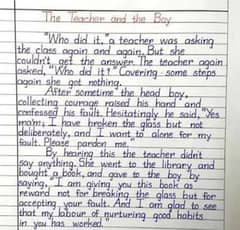 The Teacher and the Boy
"Who did it," a teacher was asking
the class again and again. But she
couldn't get the answer. The teacher again
asked, "Who did it?" Covering some steps
again she got nothing.
After sometime the head boy,
collecting courage raised his hand and
confessed his fault. Hesitatingly he said, "Yes
ma'm, I have broken the glass but not
deliberately, and I want to alone for my
fault. Please pardon me."
By hearing this the teacher didn't
say anything. She went to the library and
bought a book, and gave to the boy by
saying, "I am giving you this book as
reward not for breaking the glass but for
accepting your fault. And I am glad to see
that my labour of nurturing good habits
in you has worked."